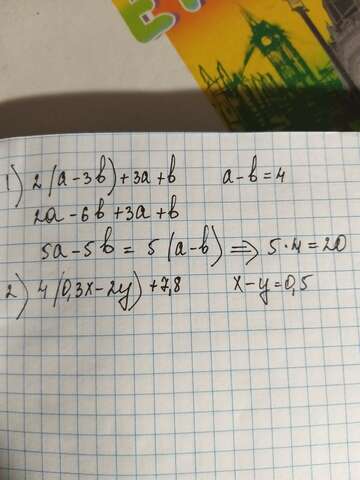 1) 2(a-3b)+3a+b a-b=4
2a-6b+3a+b
5a-5b = 5(a-b) ⟹ 5·4=20
2) 4(0,3x-2y)+7,8 x-y=0,5